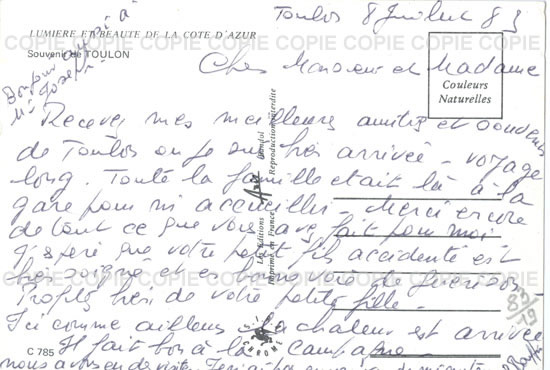 Toulon 8 Juillet 83
LUMIERE ET BEAUTE DE LA COTE D'AZUR
Souvenir de TOULON
COPIE COPIE COPIE COPIE COPIE COPIE COPIE
Bonjour aussi à
Mr Joseph
Cher Monsieur et Madame
Couleurs
Naturelles
Recevez mes meilleures amitiés et souvenirs
de Toulon où je suis très arrivée - voyage
long. Toute la famille était là à la
gare pour m'accueillir - Merci encore
de tout ce que vous avez fait pour moi
J'espère que votre petit fils accidenté est
très soigné et en bonne voie de guérison
Profitez bien de votre petite fille -
Ici comme ailleurs la chaleur est arrivée
Il fait bon à la campagne -
nous avons
Les Editions
Imprimé en France
Bandol
Reproduction interdite
CHROME
C 785